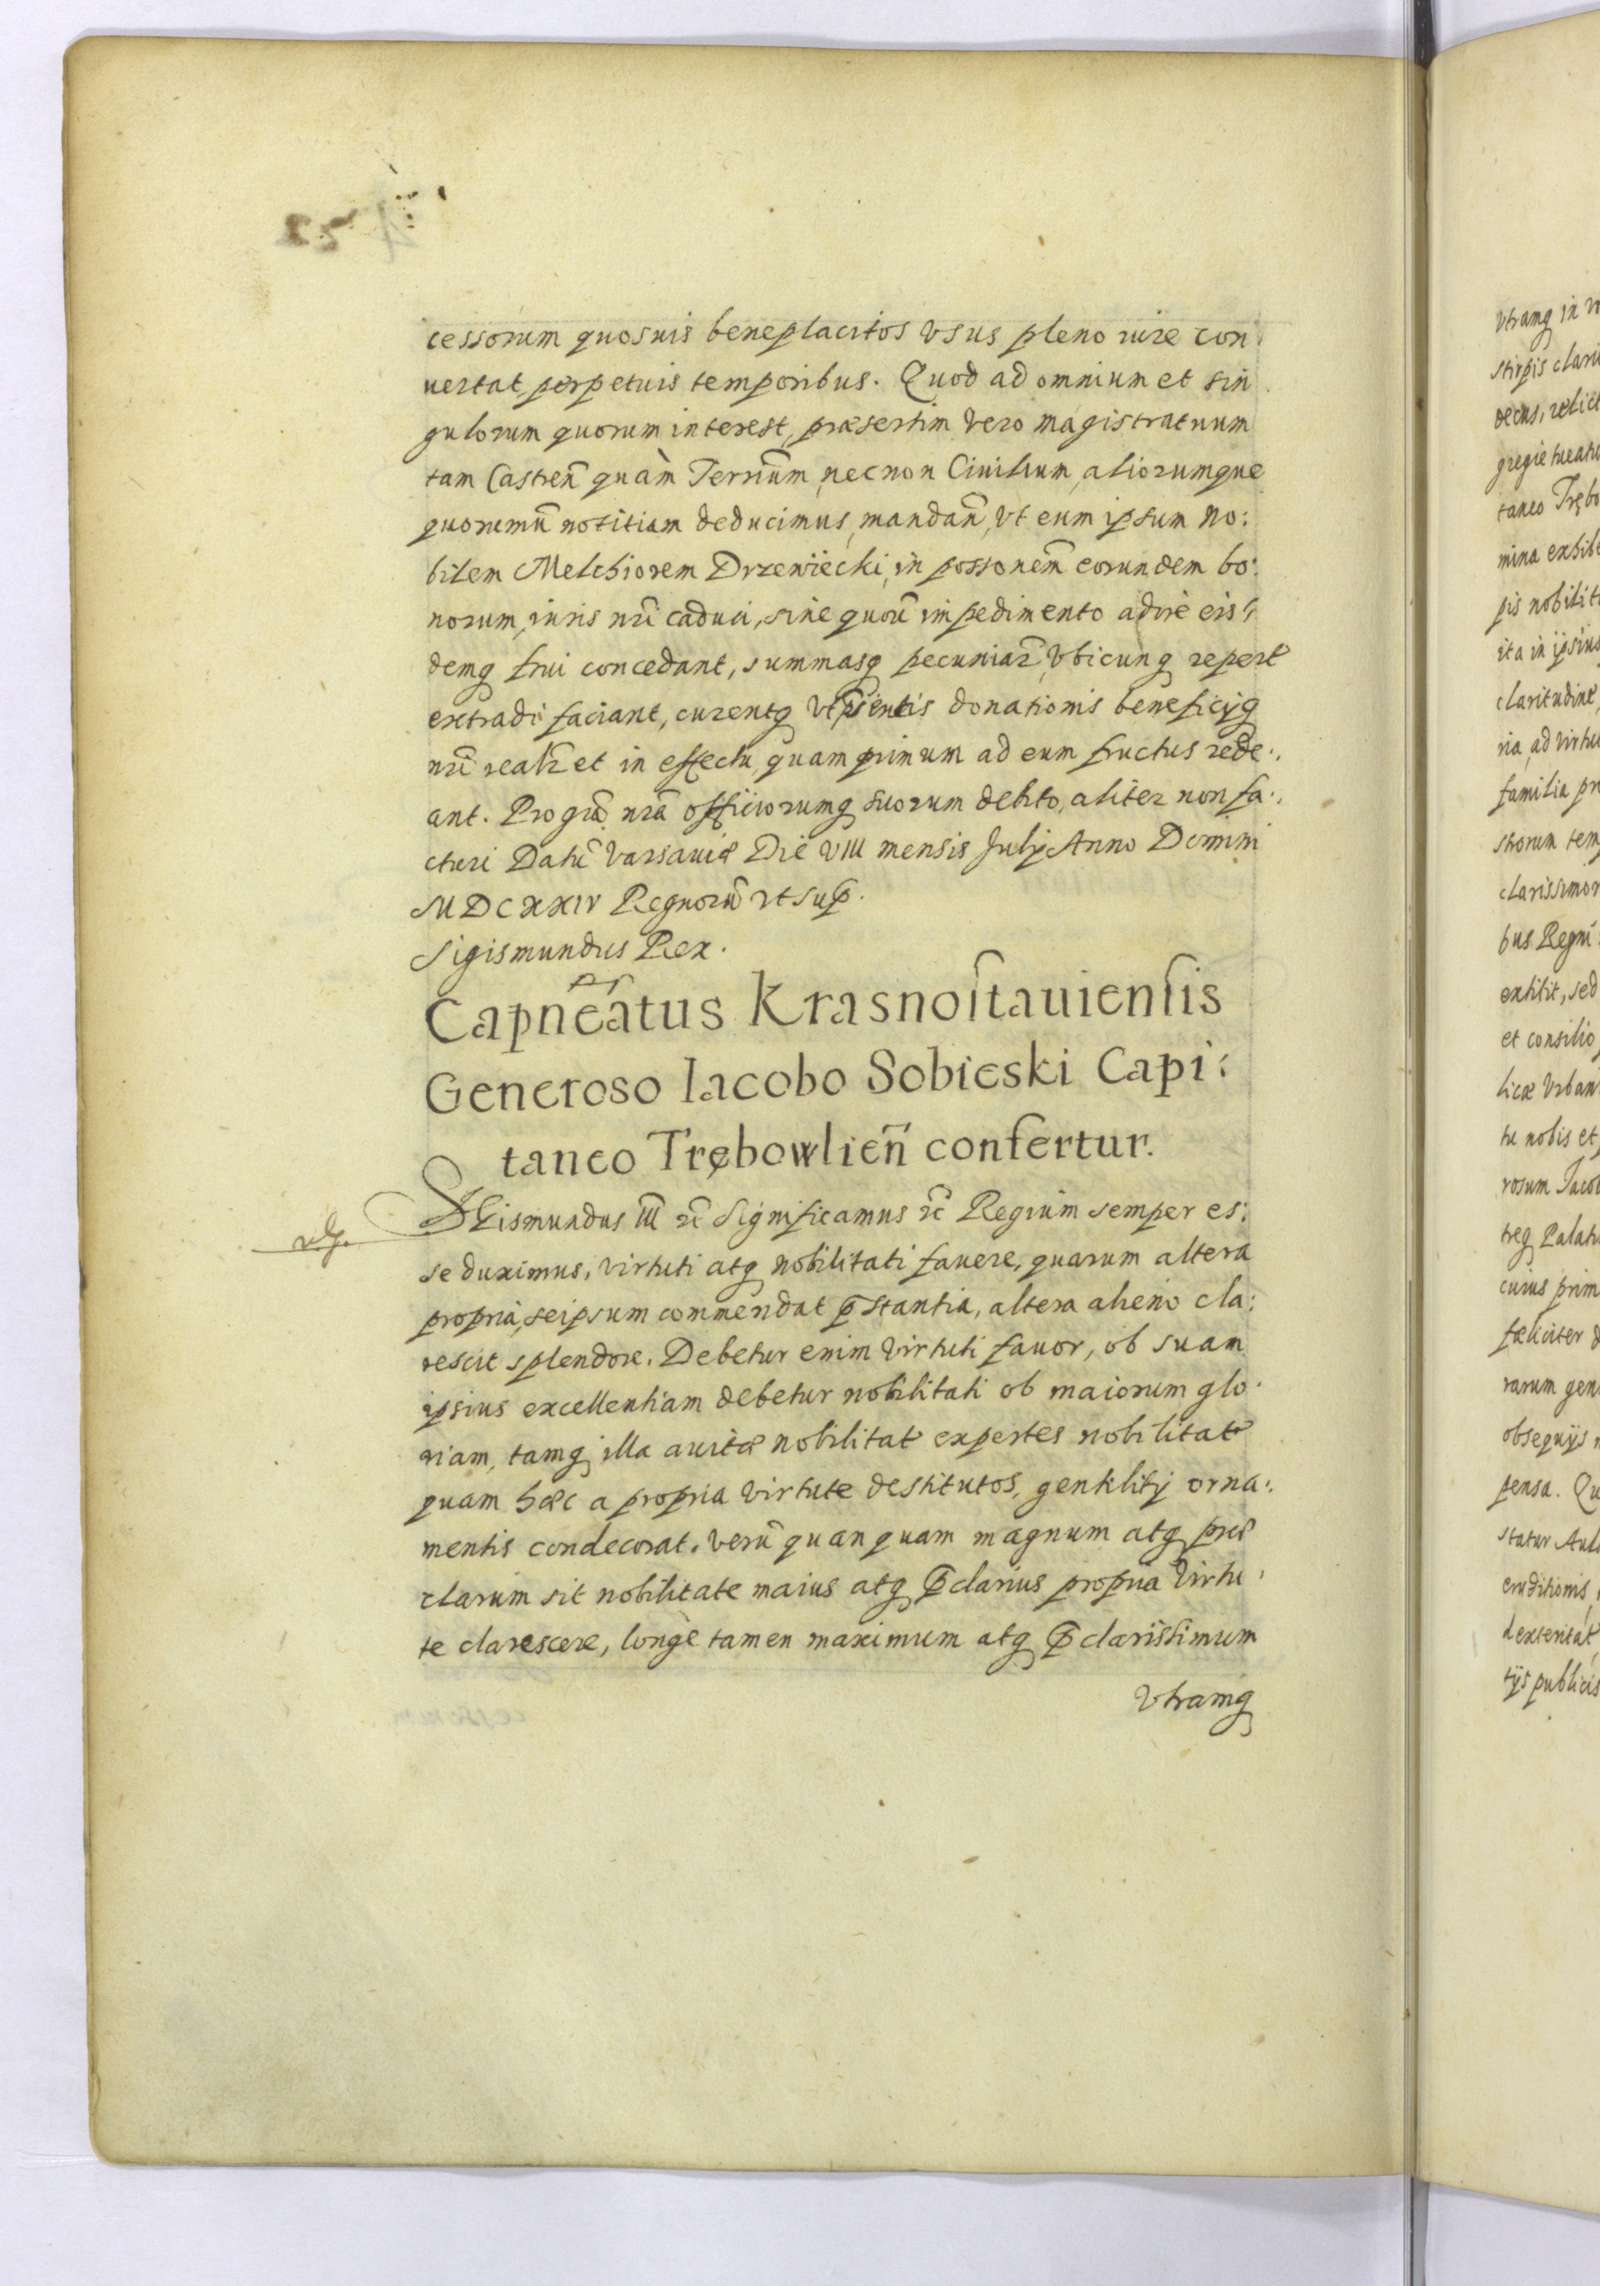 cessorum quosuis beneplacitos vsus pleno iure con
uertat perpetuis temporibus. Quod ad omnium et sin
gulorum quorum interest, præsertim vero magistratuum
tam Castren̄ quàm Terrium̄, necnon Ciuilium, aliorumque
quorumū notitiam deducimus, mandan̄, vt eum ipsum No:
bilem Melchiorem Drzewiecki, in possonem̄ eorundem bo:
norum, iuris nr̄i caduci, sine quorū impedimento adire eis:
demq frui concedant, summasq pecuniar̄, vbicunq repert
extradi faciant, curentq vt p̄sentis donationis beneficijq
nr̄i realr̄ et in effectu, quam primum ad eum fructus rede:
ant. Pro gra͞ nr̄a officiorumq suorum debito, aliter non fa:
cturi Datū Varsauiæ Die VIII mensis Julij Anno Domini
MDCXXIV Regnorū vt sup̄.
Sigismundus Rex.
Capn̄eātus Krasnoſtauienſis
Generoso Iacobo Sobieski Capi:
taneo Trębowlien̄ confertur.
SGismundus III r̄c Significamus r̄c Regium semper es:
se duximus, virtuti atq nobilitati fauere, quarum altera
propria, seipsum commendat p̄stantia, altera alieno cla:
rescit splendore. Debetur enim virtuti fauor, ob suam
ipsius excellentiam debetur nobilitati ob maiorum glo:
riam, tamq illa auitæ nobilitat expertes nobilitat
quam hæc a propria virtute destitutos, gentilitij orna:
mentis condecorat. Verū quanquam magnum atq præ
clarum sit nobilitate maius atq p̄clarius propria virtu:
te clarescere, longè tamen maximum atq p̄clarissimum
vtramq
vtramq in
stirpis clari
decus, relict
gregie tueatu
taneo Trębo
mina exhibe
pis nobilit
ita in ipsius
claritudine,
ria, ad virtu
familia pr
storum tem
clarissimor
bus Regni
extitit, sed
et consilio
licæ Vrban
tu nobis et
rosum Jacob
treq Palati
cuius prim
fæliciter
rarum gen
obsequijs
pensa. Qu
statur Aul
eruditionis
dexteritat
tijs publicis